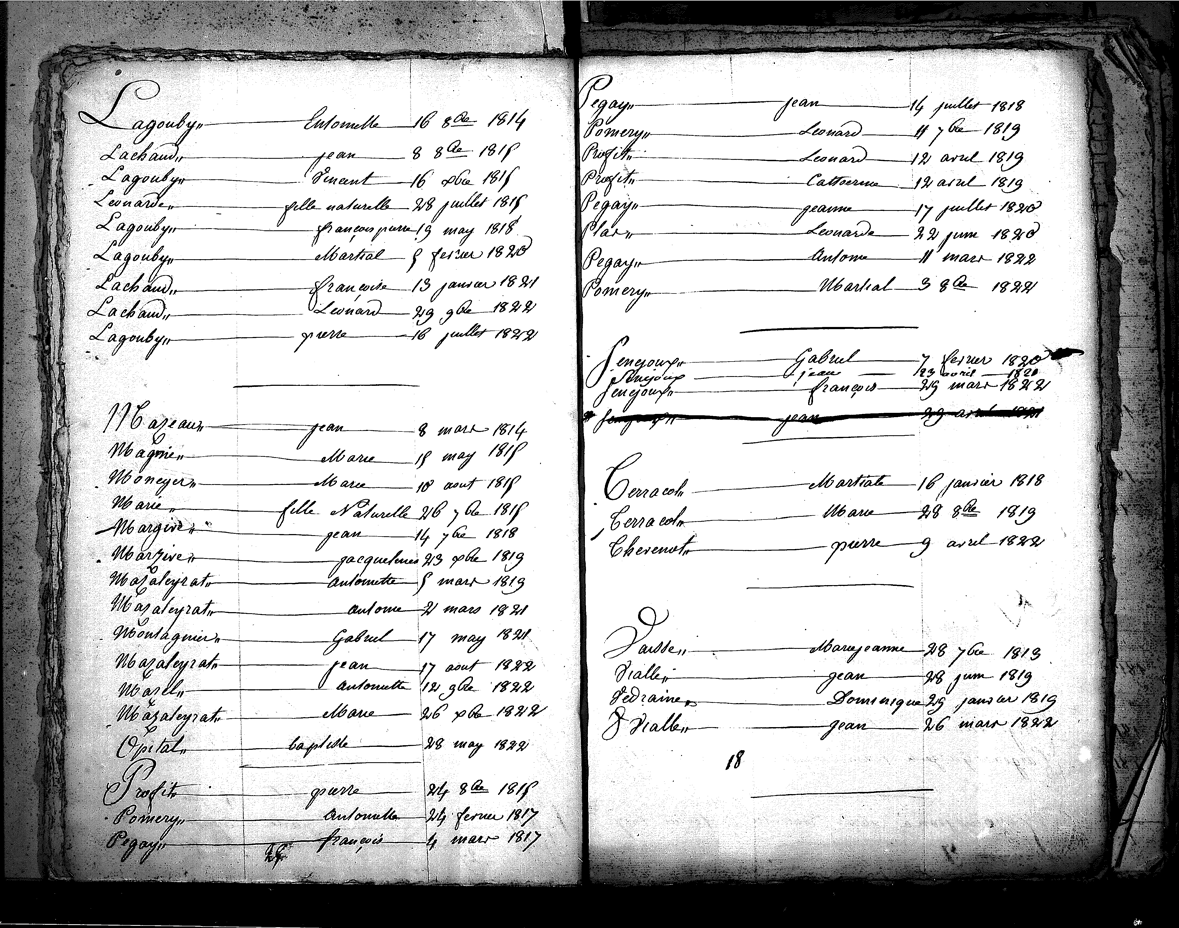 Lagouby Entoinette 16 8bre 1814
Lachaud jean 8 8bre 1815
Lagouby Vincent 16 xbre 1815
Leonarde fille naturelle 28 juillet 1815
Lagouby françois pierre 19 may 1818
Lagouby Martial 5 fevrier 1820
Lachaud françoise 13 janvier 1821
Lachaud Léonard 29 9bre 1822
Lagouby pierre 16 juillet 1822
Mazeau jean 8 mars 1814
Magnie Marie 15 may 1815
Moneyer Marie 10 aout 1815
Marie fille Naturelle 26 7bre 1815
Margire jean 14 7bre 1818
Marzire jacquelines 23 xbre 1819
Mazaleyrat antoinette 5 mars 1819
Mazaleyrat antoine 21 mars 1821
Montagnier Gabriel 17 may 1821
Mazaleyrat jean 17 aout 1822
Mazel antoinette 12 9bre 1822
Mazaleyrat Marie 26 xbre 1822
Opital baptiste 28 may 1822
Profit pierre 24 8bre 1815
Pomery Antoinette 24 fevrier 1817
Pegay françois 4 mars 1817
Pegay jean 14 juillet 1818
Pomery Leonard 11 7bre 1819
Profit Leonard 12 avril 1819
Profit Catherine 12 avril 1819
Pegay jeanne 17 juillet 1820
Plas Leonarde 22 juin 1820
Pegay Antoine 11 mars 1822
Pomery Martial 3 8bre 1822
Senejoux Gabriel 7 fevrier 1820
Senejoux jean 23 avril 1821
Senejoux françois 29 mars 1822
jean 29 avril 1821
Terracol Martiale 16 janvier 1818
Terracol Marie 28 8bre 1819
Thevenot pierre 9 avril 1822
Vaisse Marie jeanne 28 7bre 1813
Vialle jean 28 juin 1819
Vedraine Dominique 29 janvier 1819
Vialle jean 26 mars 1822
18